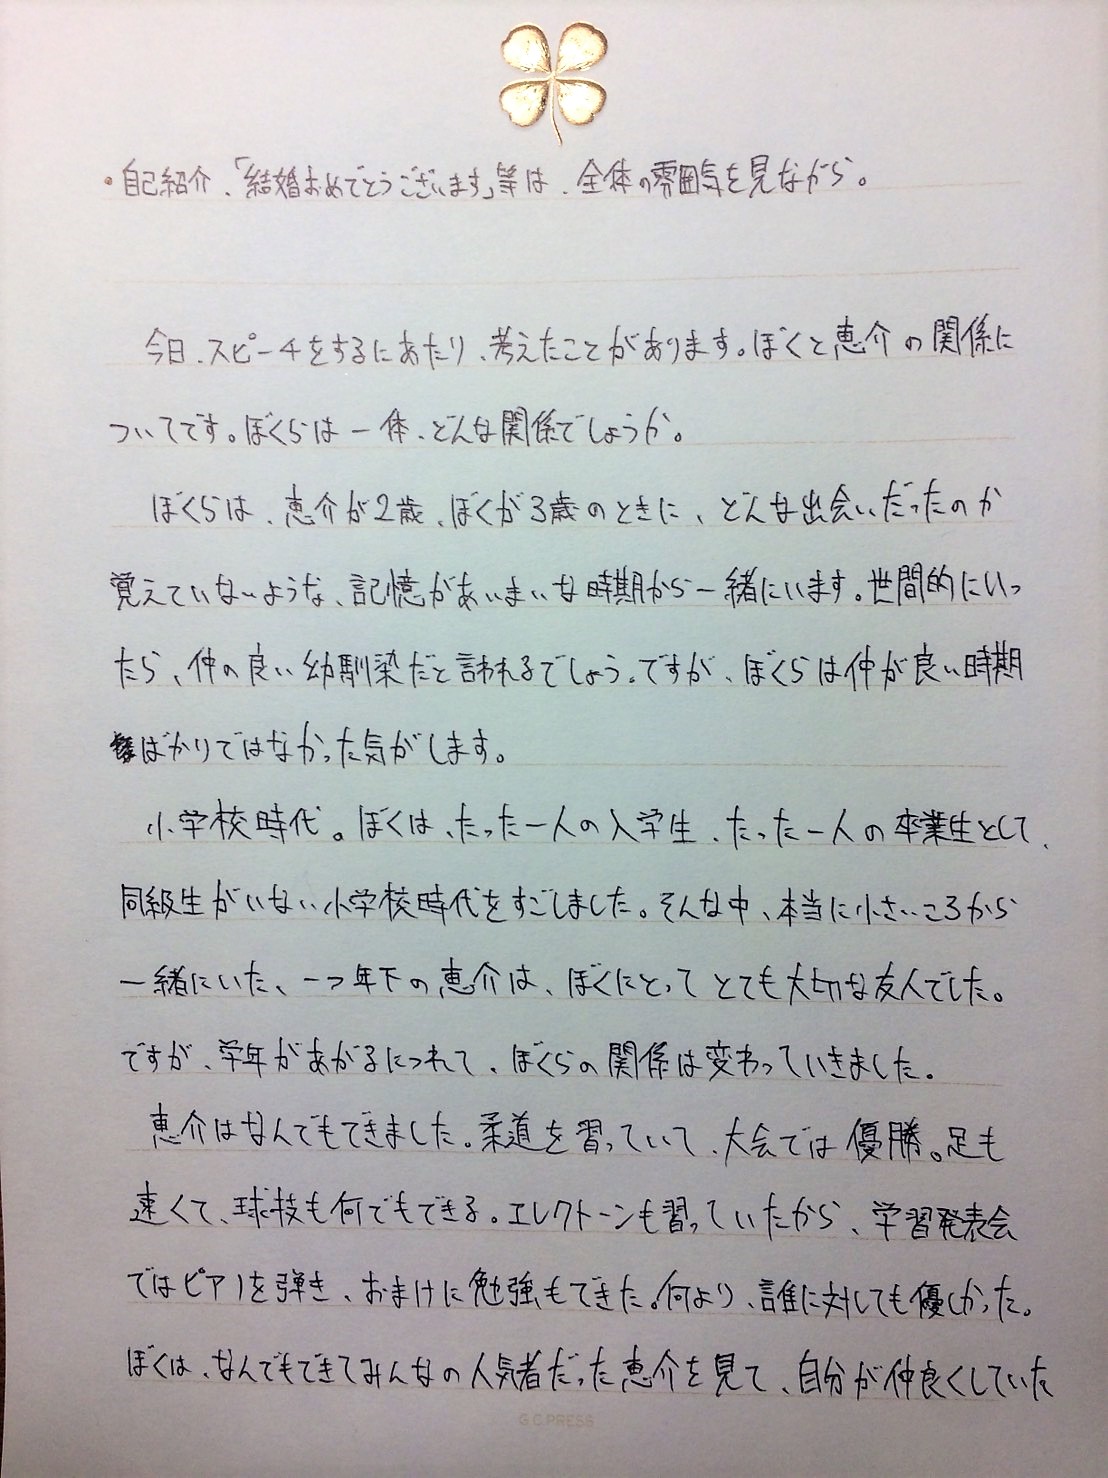 ・自己紹介、「結婚おめでとうございます」等は、全体の雰囲気を見ながら。
今日、スピーチをするにあたり、考えたことがあります。ぼくと恵介の関係に
ついてです。ぼくらは一体、どんな関係でしょうか。
ぼくらは、恵介が2歳、ぼくが3歳のときに、どんな出会いだったのか
覚えていないような、記憶があいまいな時期から一緒にいます。世間的にいっ
たら、仲の良い幼馴染だと言われるでしょう。ですが、ぼくらは仲が良い時期
ばかりではなかった気がします。
小学校時代。ぼくは、たった一人の入学生、たった一人の卒業生として、
同級生がいない小学校時代をすごしました。そんな中、本当に小さいころから
一緒にいた、一つ年下の恵介は、ぼくにとってとても大切な友人でした。
ですが、学年があがるにつれて、ぼくらの関係は変わっていきました。
恵介はなんでもできました。柔道を習っていて、大会では優勝。足も
速くて、球技も何でもできる。エレクトーンも習っていたから、学習発表会
ではピアノを弾き、おまけに勉強もできた。何より、誰に対しても優しかった。
ぼくは、なんでもできてみんなの人気者だった恵介を見て、自分が仲良くしていた
G.C.PRESS